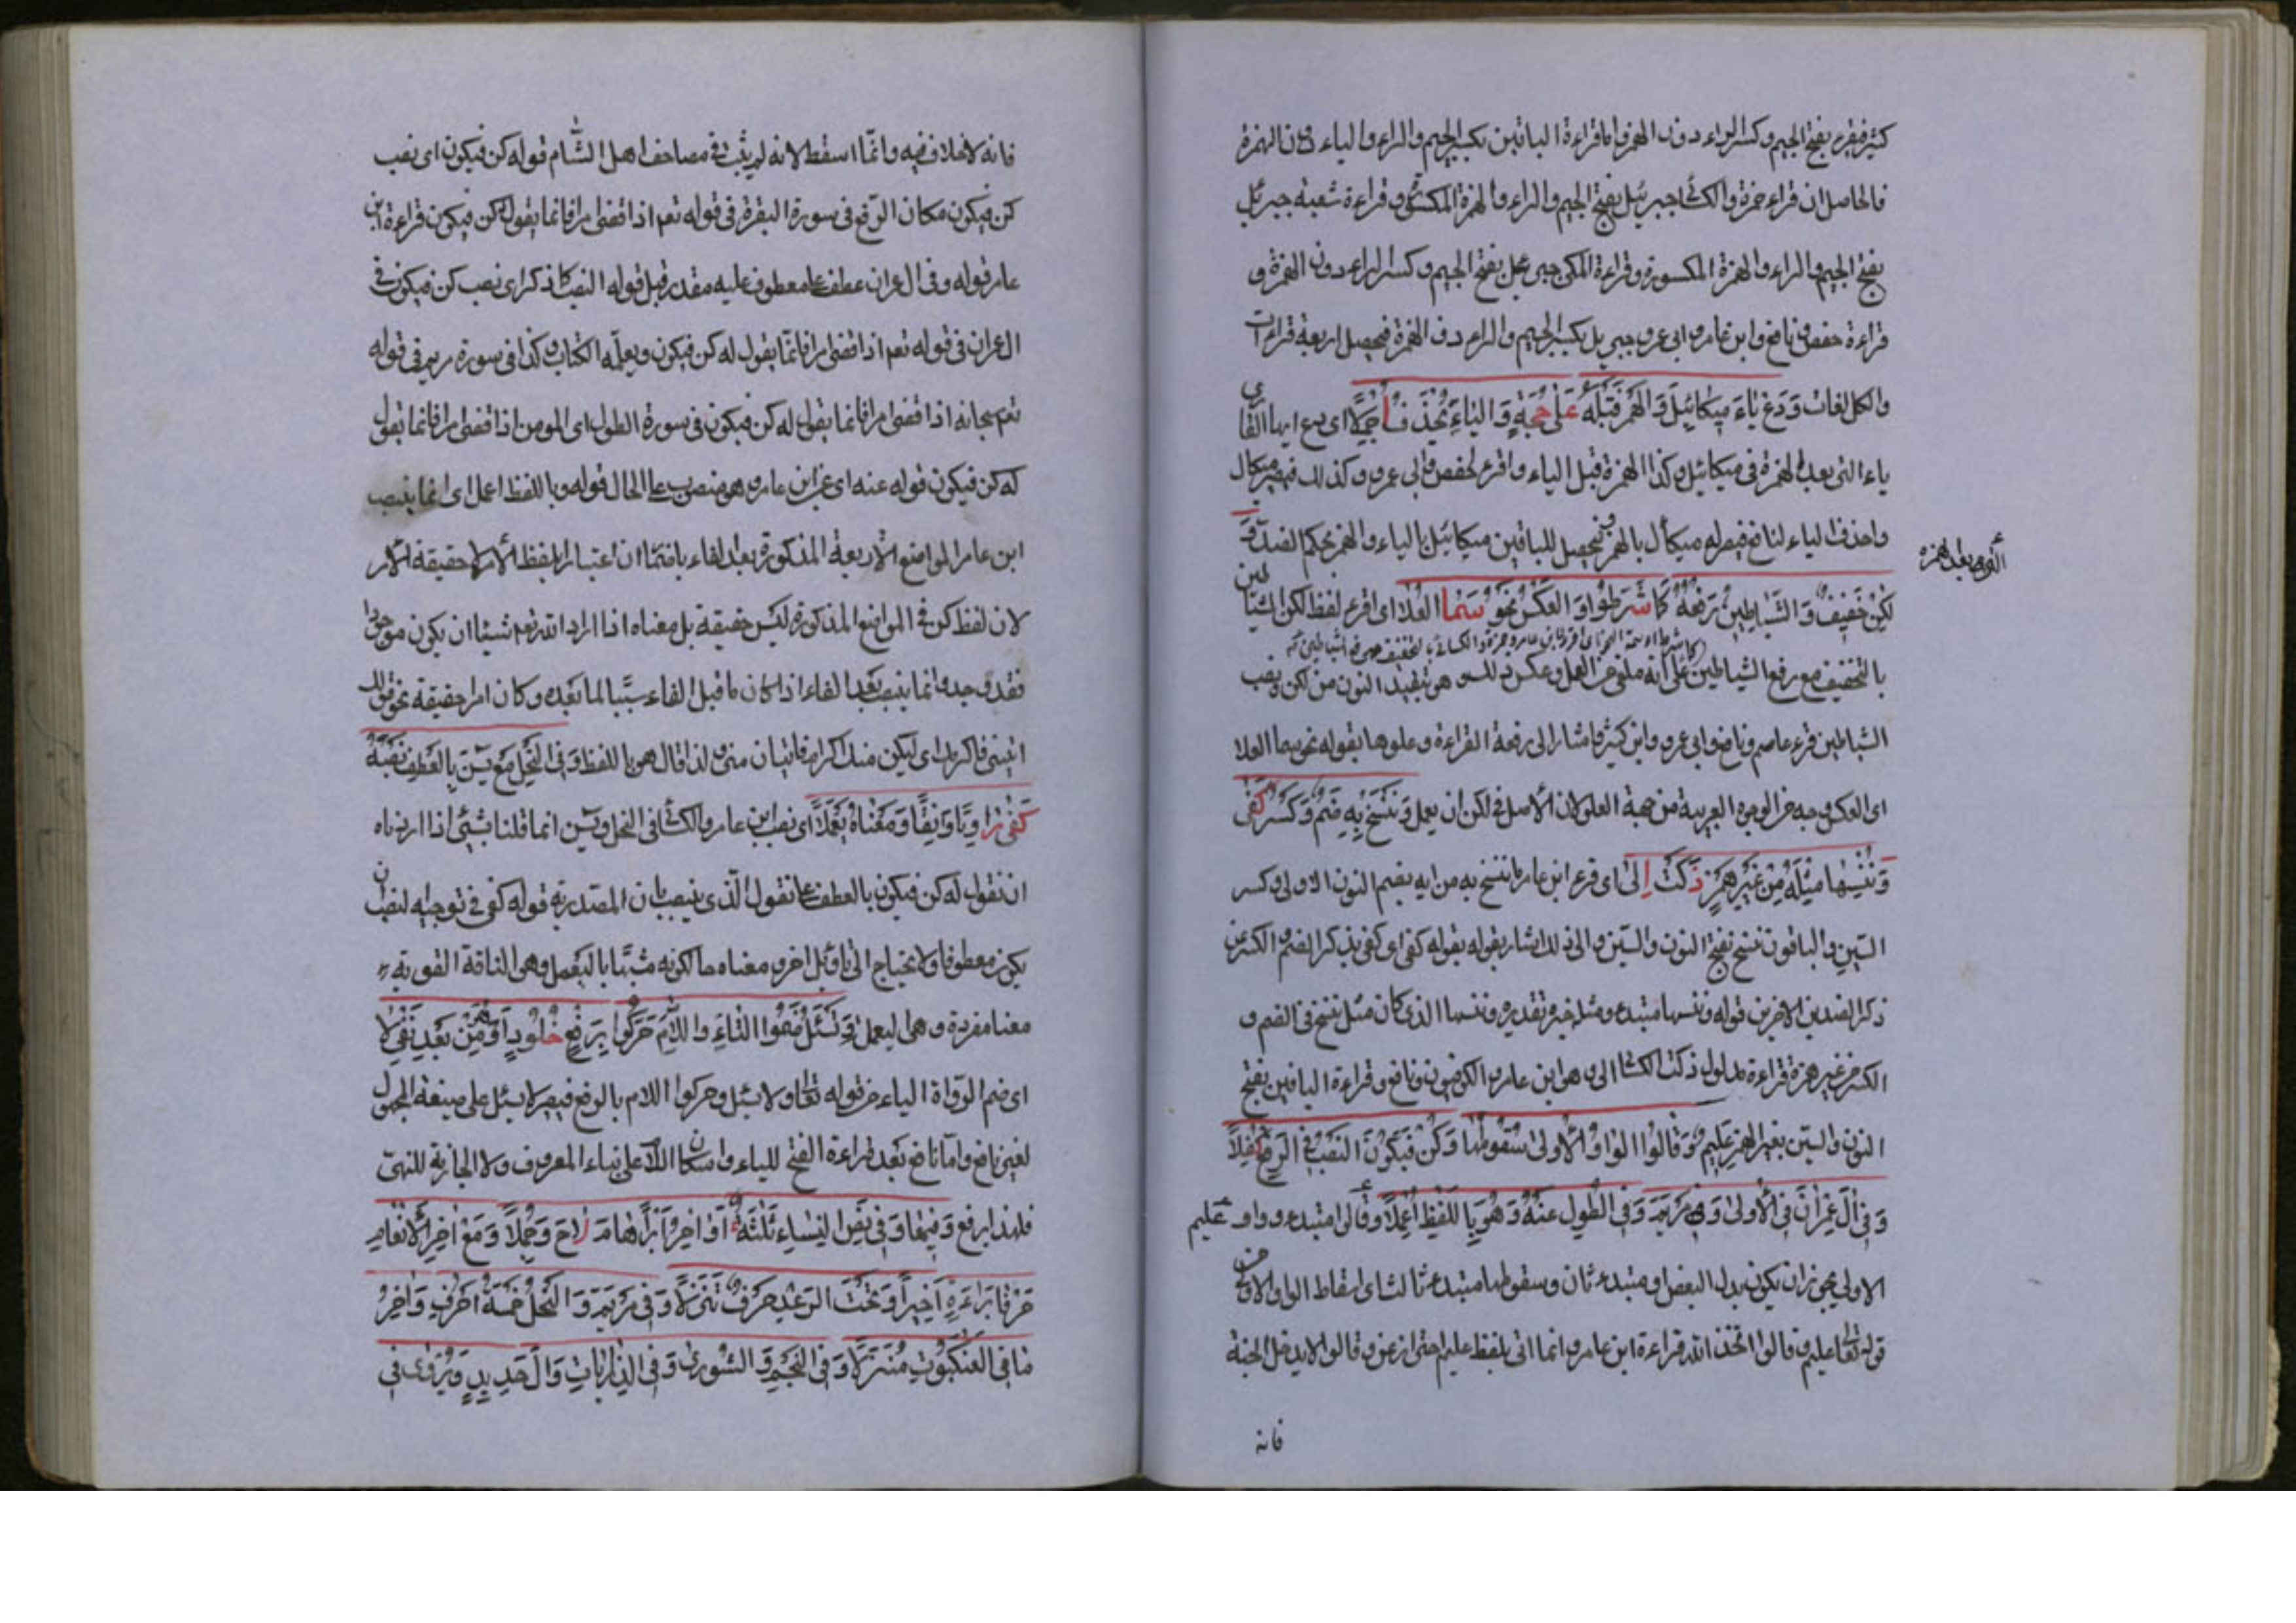 كثير فيقرء بفتح الجيم وكسر الراء دون الهمز واما قراءة الباقين بكسر الجيم والراء والياء دون الهمزة
فالحاصل ان قراءة حمزة والكسائي جبرئيل بفتح الجيم والراء والهمزة المكسورة وقراءة شعبة جبرئل
بفتح الجيم والراء والهمزة المكسورة وقراءة المكي جبريل بفتح الجيم وكسر الراء دون الهمزة و
قراءة حفص ونافع وابن عامر وابي عمرو جبريل بكسر الجيم والراء دون الهمزة فحصل اربعة قراءات
والكل لغات وَدَعْ يَاءَ مِيكَائِيلَ وَالهَمْزَ قَبْلَهُ عَلَى حُجَّةٍ وَاليَاءُ يُحْذَفُ أَجْمَلَا اى دع ايها القارى
ياء التى بعد الهمزة فى ميكائيل وكذا الهمزة قبل الياء واقرء لحفص وابى عمرو وكذلك فيصير ميكال
واحذف الياء لنافع فيصير له ميكائل بالهمز فيحصل للباقين ميكائيل بالياء والهمز بحكم الضد وَ
لَكِنْ خَفِيفٌ وَالشَّيَاطِينُ رَفْعُهُ كَمَا شَرَطُوا وَالعَكْسُ نَحْوٌ سَمَا العُلَا اى اقرء لفظ لكن الشياطين
بالتخفيف مع رفع الشياطين على انه ملغى عن العمل وعكس ذلك وهو تشديد النون من لكن ونصب
الشياطين قرء عاصم ونافع وابى عمرو وابن كثير فاشار الى رفعة القراءة وعلوها بقوله نحو سما العلا
اى العكس وجه من الوجوه العربية من جهة العلو لان الاصل فى لكن ان يعمل وَنَنْسَخْ بِهِ ضَمٌّ وَكَسْرٌ كَفَى
وَنُنْسِهَا مِثْلُهُ مِنْ غَيْرِ هَمْزٍ ذَكَتْ إِلَى اى قرء ابن عامر ما ننسخ به من اية بضم النون الاولى وكسر
السين والباقون ننسخ بفتح النون والسين والى ذلك اشار بقوله بقوله كفى اى كفى بذكر الضم والكسر عن
ذكر الضدين الاخرين قوله وننسها مبتدء ومثله خبره تقديره وننسها الذى كان مثل ننسخ فى الضم و
الكسر من غير همزة قراءة مدلول ذكت الكسا الى وهو ابن عامر والكوفيون ونافع وقراءة الباقين بفتح
النون والسين بغير الهمز عَلِيمٌ وَقَالُوا الوَاوُ الأُولَى سُقُوطُهَا وَكُنْ فَيَكُونُ النَّصْبُ فِي الرَّفْعِ كُفِّلَا
وَفِي آلِ عِمْرَانَ فِي الأُولَى وَمَرْيَمَ وَفِي الطَّوْلِ عَنْهُ وَهُوَ بِاللَّفْظِ أُعْمِلَا وقالوا مبتدء وواو عليم
الاولى يجوز ان يكون بدل البعض او مبتدء ثان وسقوطها مبتدء ثالث اى اسقاط الواو الاولى من
قوله تعالى عليم وقالوا اتخذ الله قراءة ابن عامر وانما اتى بلفظ عليم احترازا عن وقالوا لا يدخل الجنة
فانه
فانه لا خلاف فيه وانما اسقط لانه لم يثبت فى مصاحف اهل الشام قوله كن فيكون اى نصب
كن فيكون مكان الرفع فى سورة البقرة فى قوله تعم اذا قضى امرا فانما يقول له كن فيكون قراءة ابن
عامر قوله وفى ال عمران عطف على معطوف عليه مقدر قبل قوله النصب كما ذكر اى نصب كن فيكون فى
ال عمران فى قوله تعم اذا قضى امرا فانما يقول له كن فيكون ويعلمه الكتاب وكذا فى سورة مريم فى قوله
تعم سبحانه اذا قضى امرا فانما يقول له كن فيكون فى سورة الطول اى المومن اذا قضى امرا فانما يقول
له كن فيكون قوله عنه اى عن ابن عامر وهو منصوب على الحال قوله وباللفظ اعمل اى انما ينصب
ابن عامر المواضع الاربعة المذكورة بعد الفاء باعتبار اللفظ الامر لا حقيقة الامر
لان لفظ كن فى المواضع المذكورة ليس حقيقة بل معناه اذا اراد الله تعم شيئا ان يكون موجودا
فقد وجد وانما ينصب بعد الفاء اذا كان ما قبل الفاء سببا لما بعده وكان امر حقيقة نحو قولك
ائتنى فاكرمك اى ليكن منك اكرام فاتيان منى لذا قال هو باللفظ وَفِي النَّحْلِ مَعْ يس بِالعَطْفِ نَصْبُهُ
كَفَى رَاوِيًا وَانْقَادَ مَعْنَاهُ يَعْمُلَا اى نصب ابن عامر والكسائى فى النحل ويس انما قولنا لشيئ اذا اردناه
ان نقول له كن فيكون بالعطف على نقول الذى ينصب بان المصدرية قوله كفى فى توجيه النصب ان
يكون معطوفا ولا يحتاج الى تاويل اخر ومعناه حال كونه مشبها باليعمل وهى الناقة القوية
معنا مفردة وهى اليعمل وَتُسْئَلُ ضَمُّوا التَّاءَ وَاللَّامَ حَرَّكُوا بِرَفْعٍ خُلُودًا وَهُوَ مِنْ بَعْدِ نَفْيِ لَا
اى ضم الرواة الياء من قوله تعالى ولا تسئل وحركوا اللام بالرفع فيصير لا تسئل على صيغة المجهول
لغير نافع واما نافع بعد قراءة الفتح للياء واسكان اللام على بناء المعروف ولا الجازية للنهى
فلهذا يرفع وَفِيهَا وَفِي نَصِّ النِّسَاءِ ثَلَاثَةٌ أَوَاخِرُ إِبْرَاهَامَ لَاحَ وَجُمِّلَا وَمَعْ آخِرِ الأَنْعَامِ
حَرْفَا بَرَاءَةٍ أَخِيرًا وَتَحْتَ الرَّعْدِ حَرْفٌ تَنَزَّلَا وَفِي مَرْيَمَ وَالنَّحْلِ خَمْسَةُ أَحْرُفٍ وَآخِرُ
مَا فِي العَنْكَبُوتِ مُنَزَّلَا وَفِي النَّجْمِ وَالشُّورَى وَفِي الذَّارِيَاتِ وَالحَدِيدِ وَيُرْوَى فِي